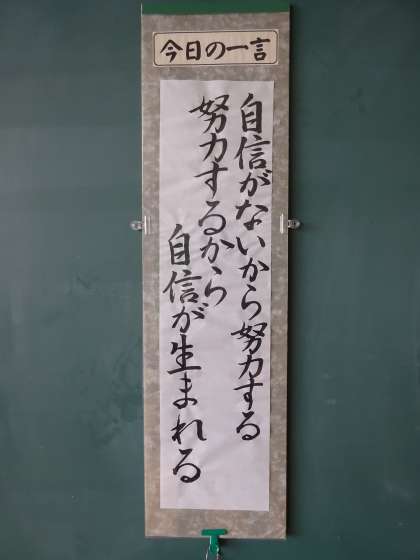 今日の一言
自信がないから努力する
努力するから
自信が生まれる